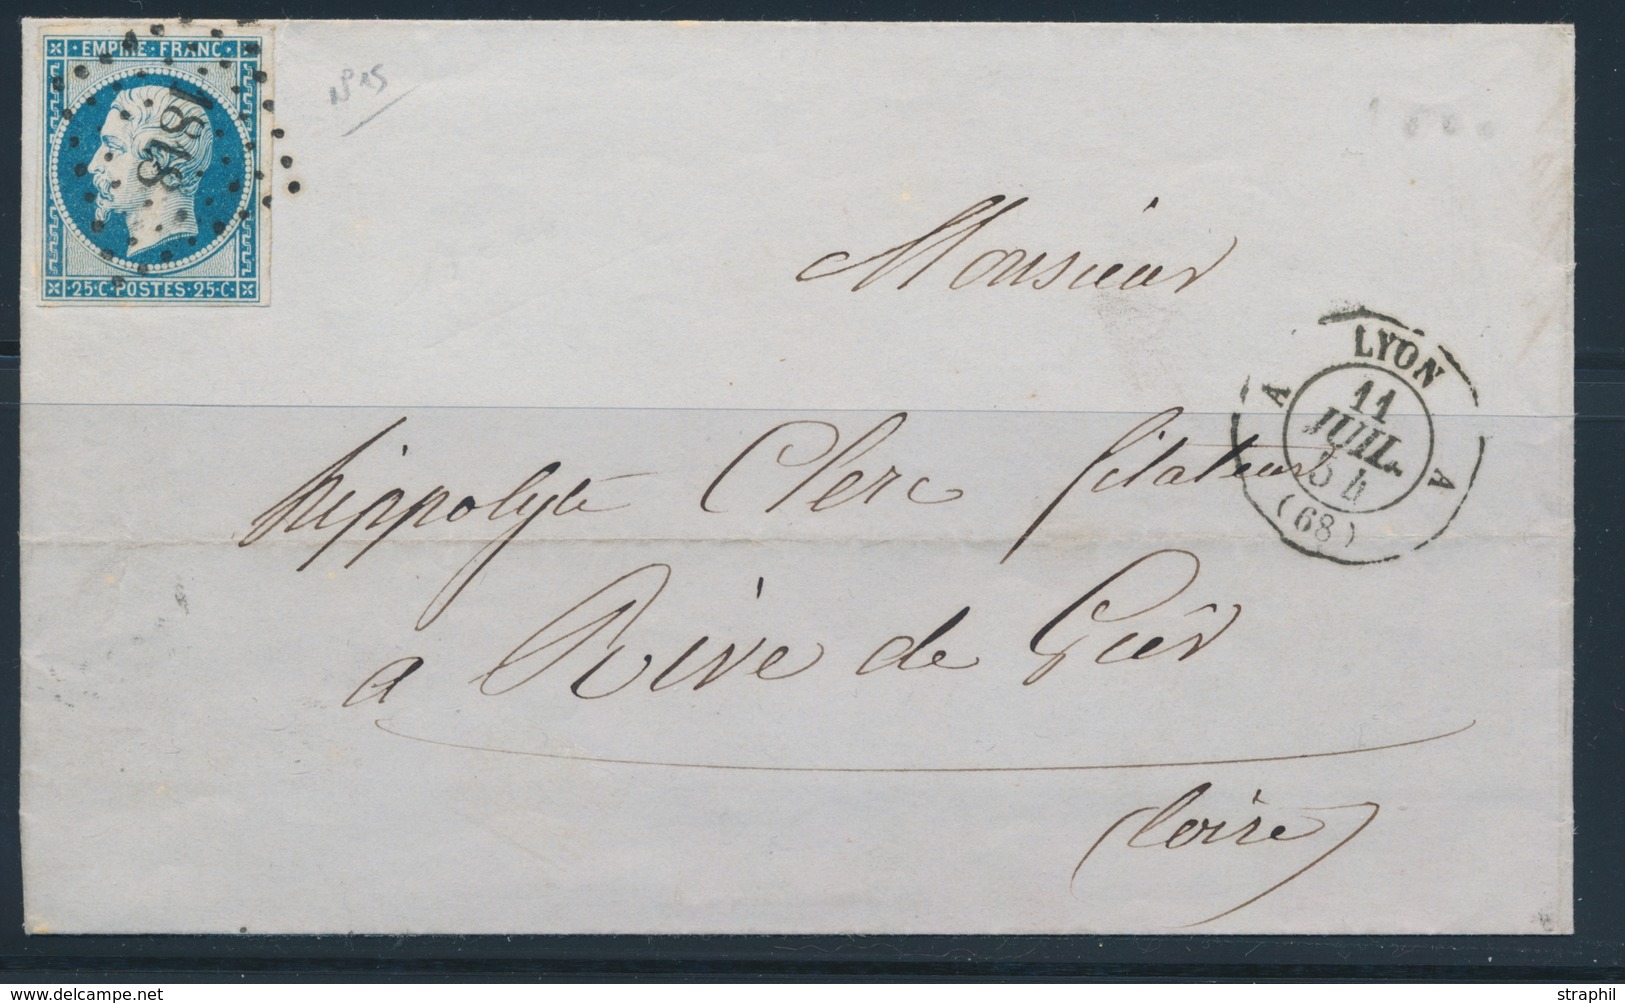 · EMPIRE · FRANC ·
1818
· 25 · C · POSTES · 25 · C ·
N° 15
Monsieur
LYON
A A
11
JUIL.
54
(68)
hippolyte Clerc filateur
a Rive de Gier
(Loire)
© delcampe.net
straphil